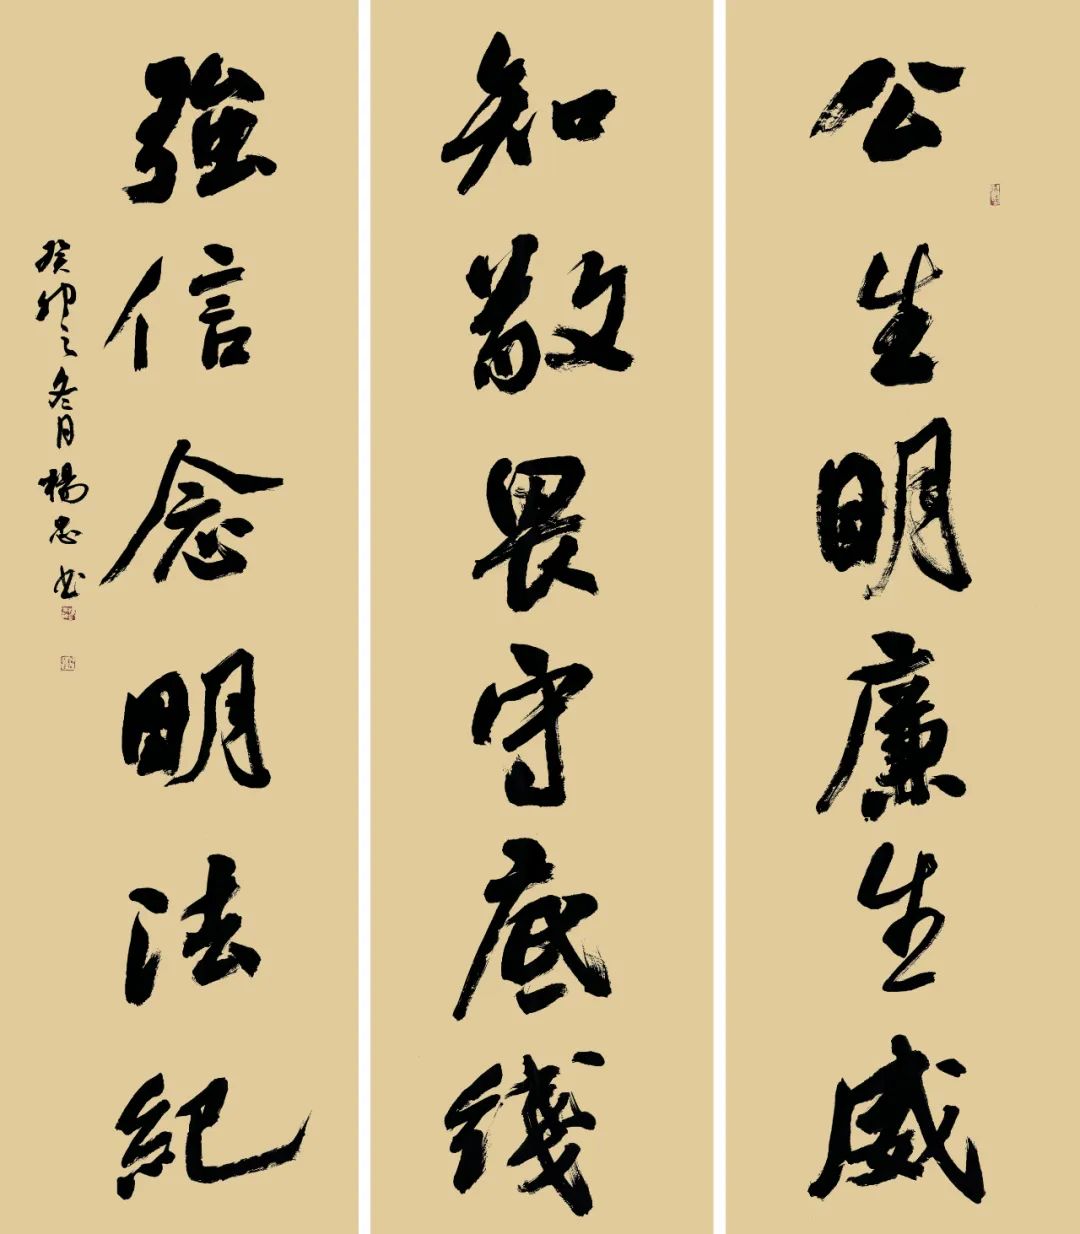 公生明廉生威
知敬畏守底线
強信念明法紀
癸卯之冬月楊忠书